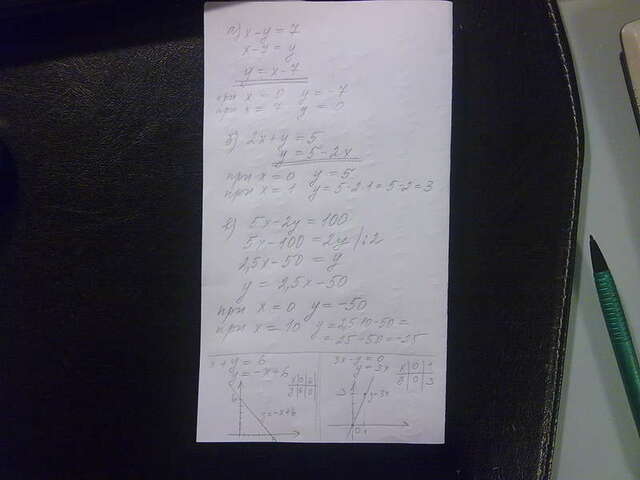 а) x-y=7
x-y=y
y=x-7
при x=0 y=-7
при x=7 y=0
б) 2x+y=5
y=5-2x
при x=0 y=5
при x=1 y=5-2·1=5-2=3
в) 5x-2y=100
5x-100=2y |:2
2,5x-50=y
y=2,5x-50
при x=0 y=-50
при x=10 y=25·10-50=
=25-50=-25
x+y=6
y=-x+6
x 0 6
y 6 0
6
y=-x+6
3x-y=0
y=3x
x 0 1
y 0 3
3
y=3x
0 1